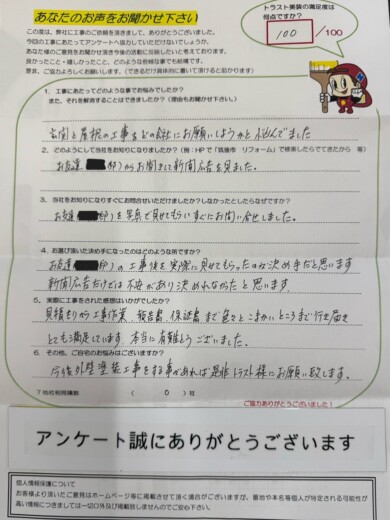 あなたのお声をお聞かせ下さい
トラスト美装の満足度は
何点ですか?
100 /100
この度は、弊社に工事のご依頼を頂きまして、ありがとうございました。
今回の工事にあたってアンケートへ協力していただけないでしょうか。
あなた様のご意見をお聞かせ頂き今後の活動に反映したいと考えております。
良かったこと・嬉しかったこと、どのような些細な事でも結構です。
是非、ご協力よろしくお願いします。(できるだけ具体的に書いて頂けると助かります)
1. 工事にあたってどのような事でお悩みでしたか?
また、それを解消することはできましたか?(理由もお聞かせ下さい。)
玄関と屋根の工事をどの会社にお願いしようかと悩んでました
2. どのようにして当社をお知りになりましたか?(例:HPで「筑後市 リフォーム」で検索したらでてきたから 等)
お友達( 邸)からお聞きして新聞広告を見ました。
3. 当社をお知りになりすぐにお問合せいただけましたか?しなかったとしたらなぜですか?
お友達( 邸)を写真で見せてもらいすぐにお問い合せしました。
4. お選び頂いた決め手になったのはどのような所ですか?
お友達( 邸)の工事後を実際に見せてもらったのが決め手だと思います
新聞広告だけでは不安があり決めれなかったと思います。
5. 実際に工事をされた感想はいかがでしたか?
見積もりから工事作業、報告書、保証書まで色々とこまかいところまで行き届き
とても満足しています。本当に有難うございました。
6. その他、ご自宅のお悩みはございますか?
今後外壁塗装工事をする事があれば是非トラスト様にお願い致します。
7 他社利用購数 ( 0 )社
ご協力ありがとうございました!
アンケート誠にありがとうございます
個人情報保護について
お客様より頂いたご意見はホームページ等に掲載させて頂く場合がございますが、番地や本名等個人が特定される可能性が
高い情報につきましては一切口外及び掲載致しませんのでご安心下さい。